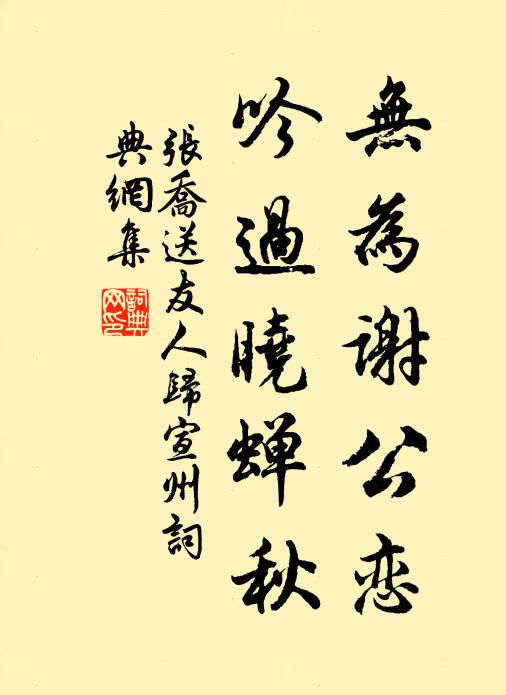 無為謝公戀
吟過曉蟬秋
張喬送友人歸宣州詞
典網集
詞典
网印